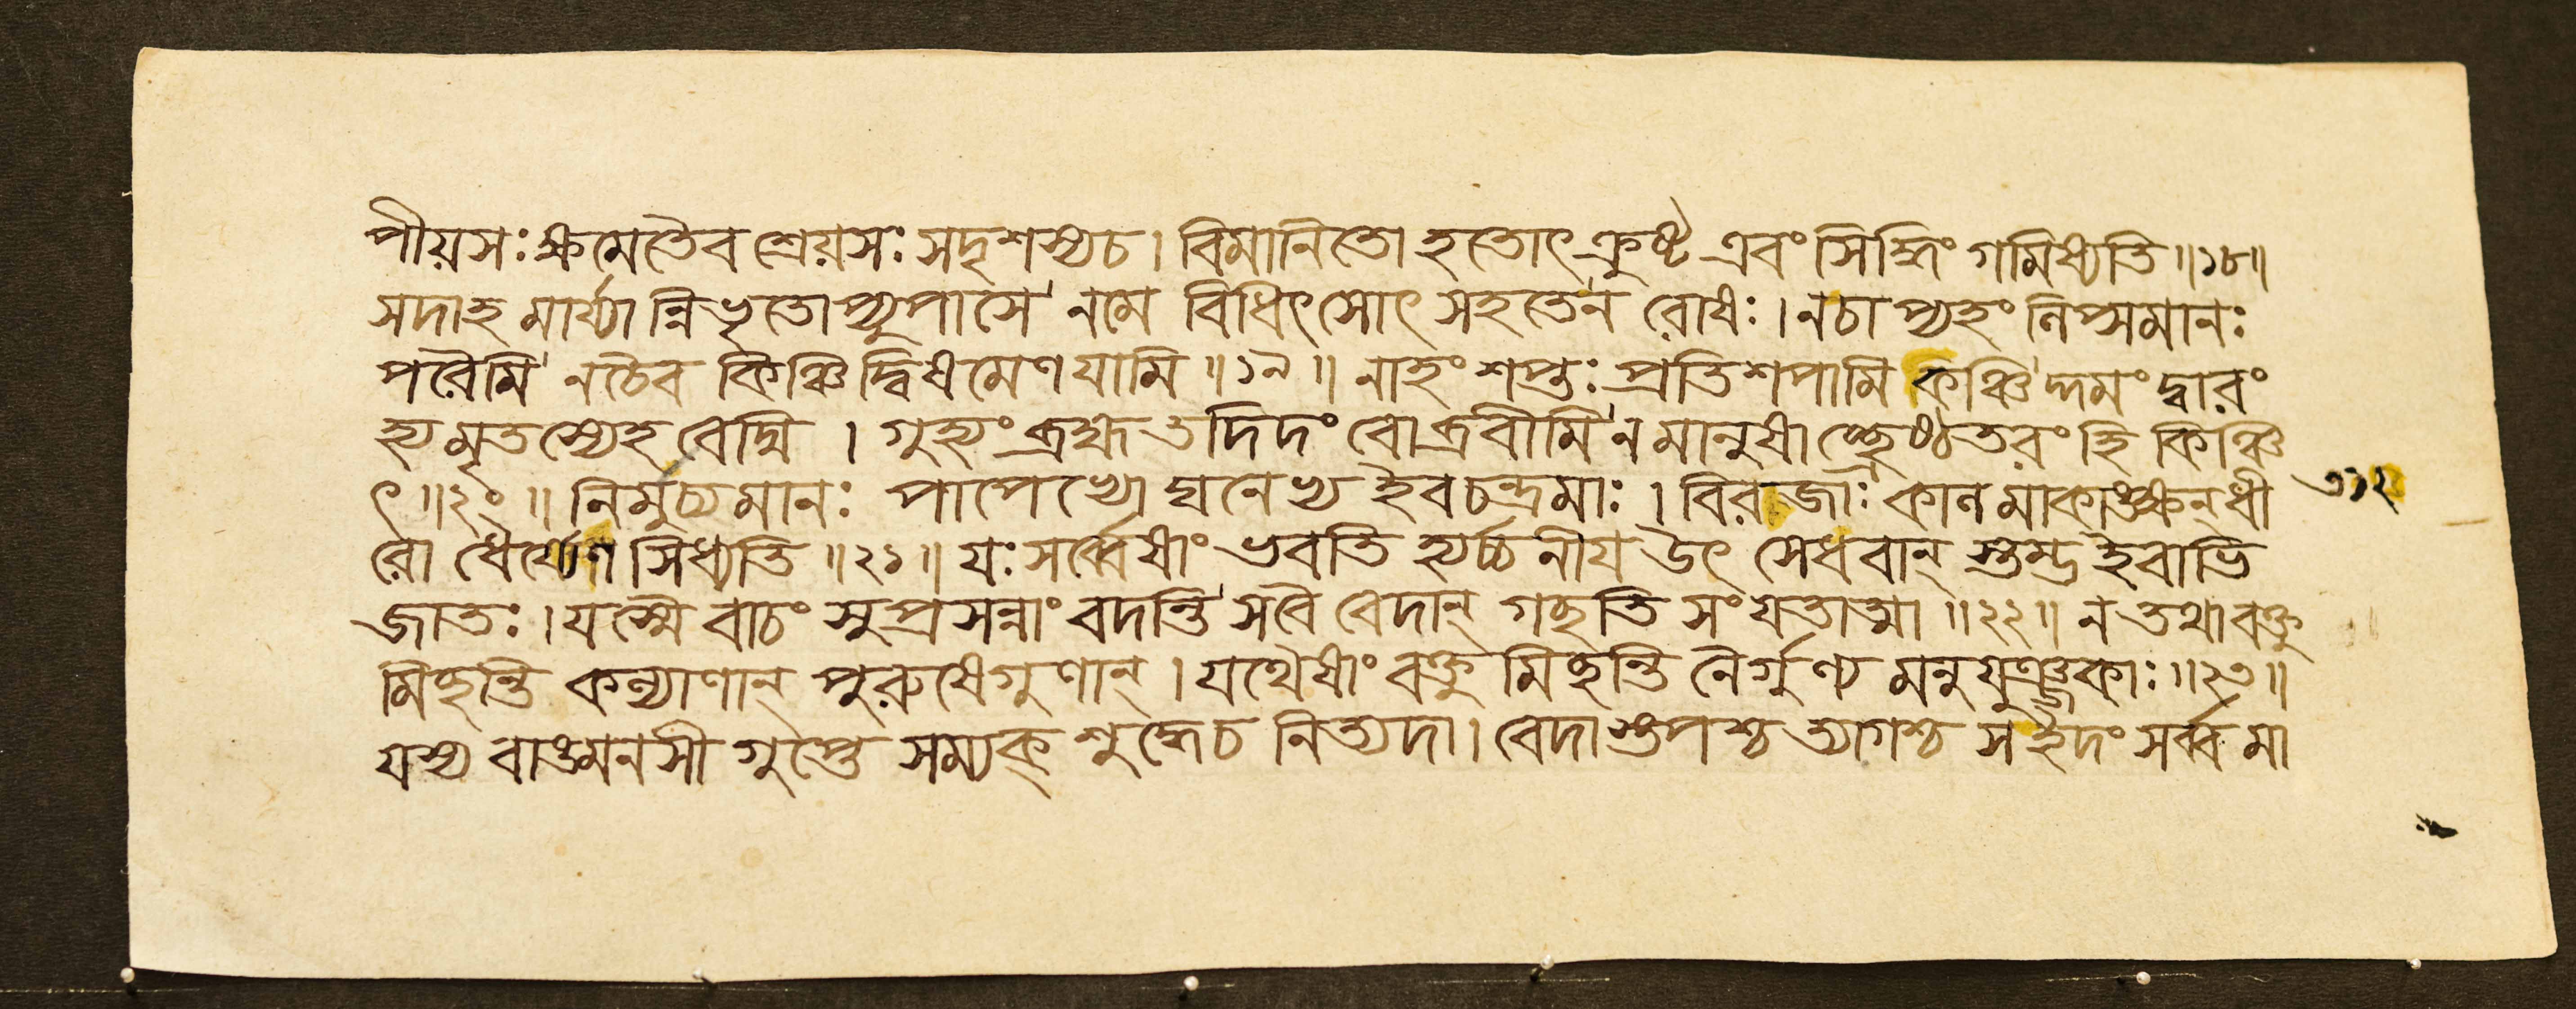 পীয়সঃ ক্ষমেতৈব শ্রেয়সঃ সদৃশস্যচ। বিমানিতো হতোৎক্রুষ্ট এবং সিদ্ধিং গমিষ্যতি ॥১৮॥
সদাহমার্য্যান্নিভৃতোপ্যুপাসে নমে বিধিৎসোৎসহতেন রোষঃ। নচাপ্যহং লিপ্সমানঃ
পরৈমি নচৈব কিঞ্চিদ্বিষমেণ যামি ॥১৯॥ নাহং শপ্তঃ প্রতিশপামি কঞ্চিদ্দমং দ্বারং
হ্যমৃতস্যেহ বেদ্মি । গুহ্যং ব্রহ্ম তদিদং বোব্রবীমি ন মানুষাচ্ছ্রেষ্ঠতরং হি কিঞ্চি
ৎ ॥২০॥ নির্মুচ্যমানঃ পাপেভ্যো ঘনেভ্য ইবচন্দ্রমাঃ । বিরজাঃ কালমাকাঙ্ক্ষন্ ধী
৩১২
রো ধৈর্য্যেণ সিধ্যতি ॥২১॥ যঃ সর্ব্বেষাং ভবতি হ্যর্চ্চনীয় উৎসেধবান্ স্তম্ভ ইবাভি
জাতঃ । যস্মৈ বাচং সুপ্রসন্নাং বদন্তি সবৈ বেদান্ গচ্ছতি সংযতাত্মা ॥২২॥ ন তথা বক্তু
মিচ্ছন্তি কল্যাণান্ পুরুষেগুণান্ । যথৈষাং বক্তুমিচ্ছন্তি নৈর্গুণ্যমনুযুঞ্জকাঃ ॥২৩॥
যস্য বাঙ্মনসী গুপ্তে সম্যক্ শুদ্ধেচ নিত্যদা। বেদাস্তপশ্চ ত্যাগশ্চ সইদং সর্ব্বমা